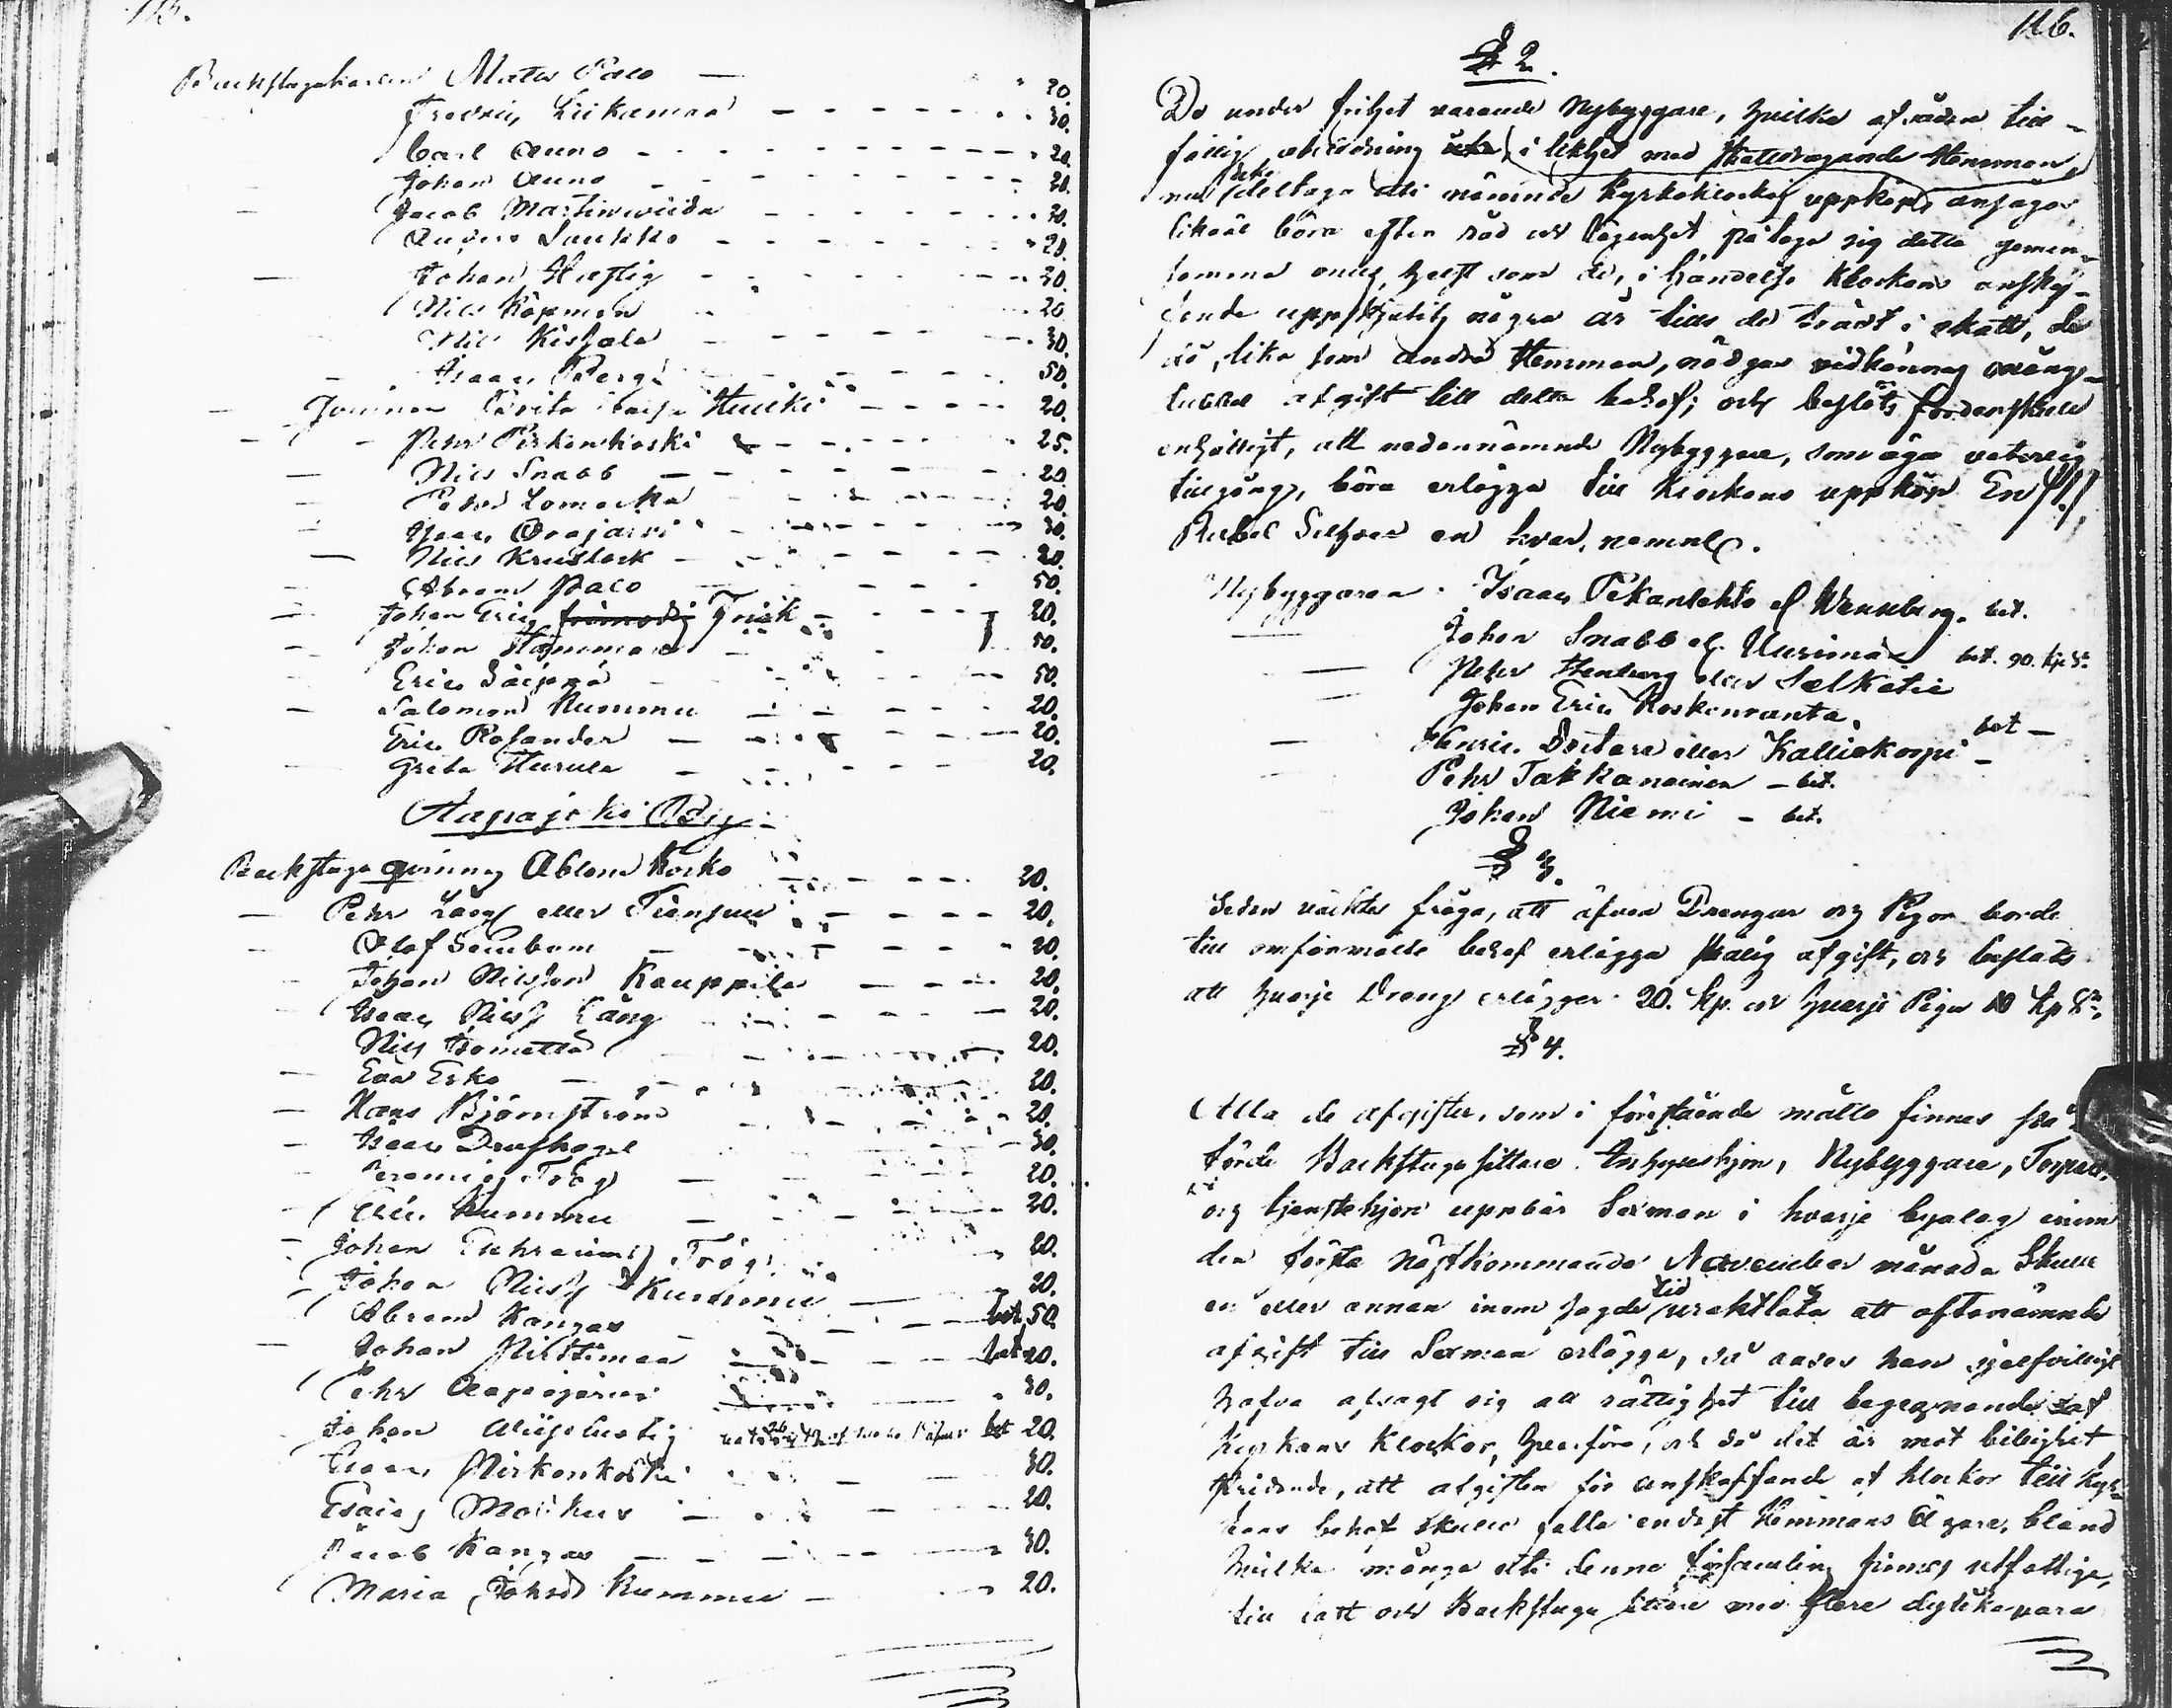 115.
Backstugukarlen Mats Palo — 20.
Fredric Liikamaa - - - - - - 30.
Carl Auno - - - - - - - - 20.
Johan Auno - - - - - - - 20.
Jacob Martinwiida - - - - - 30.
Anders Laukko - - - - - - 20.
Johan Haftig - - - - - 30.
Nils Köpman 20
Nils Kisjala - - - - - 30.
Isaac Berg - - - - - 50.
Huuki - - - - 20.
Pehr Pirkonkoski - - - - 25.
Nils Snabb - - - - - 20
Petter Lomakka - - - - - 20.
Isaac Orajärvi - - - - 30.
Nils Kruslock - - - - - 20.
Abram Palo - - - - 50.
Johan Eric Frisk - - - - 20.
Johan Hammar - - 50.
Eric - - - - 50.
Salomon Kummu - - - - 20.
Eric Rosander - - - - 20.
Greta Hurula - - - - - 20.
Aapajoki By
Backstugu qvinnan Ablona Korko - - - - 20.
— Pehr Lång eller Tiensuu - - - - 20.
Olof Seinbom - - - - 20.
Johan Nilsson Kauppila - - - - 20.
Isaac Nilss Lång - - - - 20.
Nils - - - 20.
Eva Erko - - - 20.
Hans Björnström - - - 20.
Isaac Drufhagel - - 30.
Jeremias Trög - - - 20.
Eric Kummu - - - 20.
Johan Trög 20.
Johan Nilss Kummu — 20.
Abram Kangas - - - bet 50.
Johan Pirttimaa - - - bet 20.
Pehr Aapajärvi - - 30.
Johan bet 20.
Isaac Pirkonkoski - - 30.
Esaias Markus - - - 20.
Jacob Kangas - - - 30.
Maria Johsd Kummu - - 20.
116.
§ 2.
De under frihet varande Nybyggare, hvilka af sådan till-
fällig anledning icke i likhet med Skattdragande Hemman,
nu icke deltaga uti nämnde Kyrkoklockas uppköp, ansågos
likväl böra efter råd och lägenhet pålaga sig detta gemen-
samma onus, helst som de, i händelse Klockans anskaf-
fande uppskjutits några år tills de trädt i skatt, de
då, lika som andra Hemman, nödgas vidkännas mång-
dubbel afgift till detta behof; och beslöts fördenskull
enhälligt, att nedannämnde Nybyggare, som äga veterlig
tillgång, böra erlägga till Klockans uppköp En /1./
Rubel Silfver en hvar, neml.
Nybyggaren Isaac Pekanlehto el. Wennberg. bet.
Johan Snabb el. Uusimaa bet. 90. kp Sr.
Pehr Stenberg eller Salkotie
Johan Eric Koskenranta.
— Henric eller Kalliokorpi bet —
Pehr Takkanainen — bet.
Johan Niemi — bet.
§ 3.
Sedan väcktes fråga, att äfven Drengar och Pigor borde
till omförmälte behof erlägga skälig afgift, och beslöts
att hvarje Dreng erlägger 20. kp. och hvarje Piga 10 kp Sr.
§ 4.
Alla de afgifter, som i förestående måtto finnas på-
förde Backstugusittare Inhyseshjon, Nybyggare, Torpare
och tjenstehjon uppbär Sexman i hvarje byalag inom
den första nästkommande November månad. Skulle
en eller annan inom sagde tid uraktlåta att oftanämnde
afgift till Sexman erlägga, så anses han sjelfvilligt
hafva afsagt sig all rättighet till begagnande af
Kyrkans Klockor, hvarföre, och då det är mot billighet
stridande, att afgiften för anskaffande af klockor till Kyr-
kans behof skulle falla endast Hemmans Ägare, bland
hvilka många uti denna församling finnas utfattige,
till last och Backstugu sittare med flere dylika vara